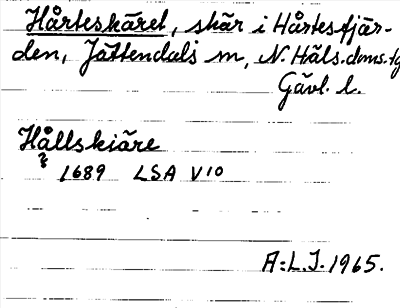 Hårteskäret, skär i Hårtesfjär-
den, Jättendals sn, N. Häls. doms. tg
Gävl. l.
Hållskiäre
? 1689 LSA V10
A:L.J. 1965.